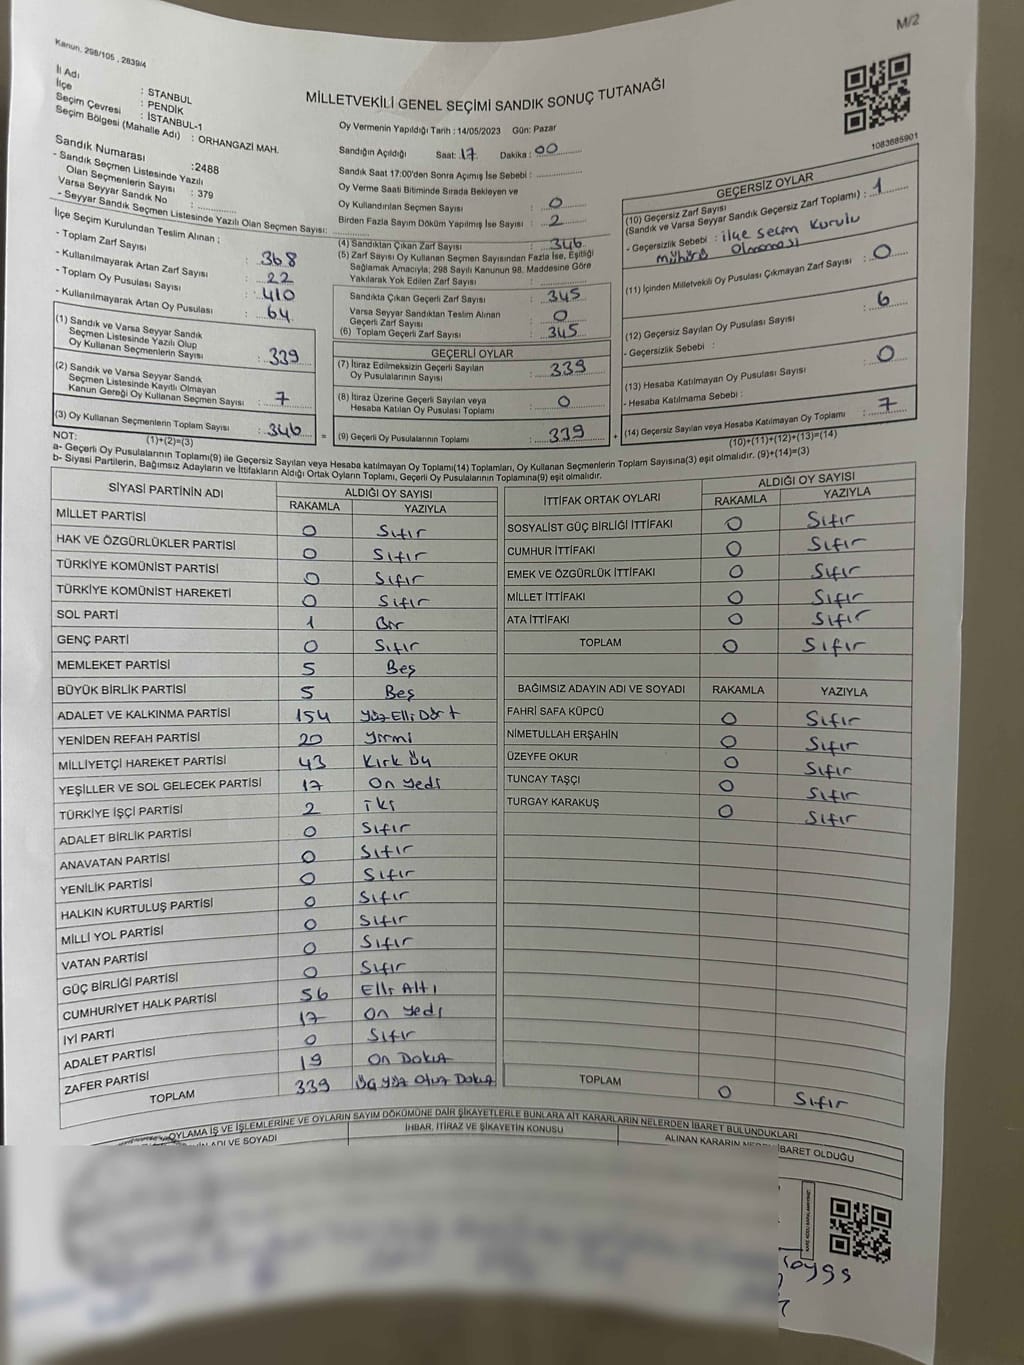 M/2
Kanun. 298/105 , 2839/4
MİLLETVEKİLİ GENEL SEÇİMİ SANDIK SONUÇ TUTANAĞI
İl Adı : STANBUL
İlçe : PENDİK
Seçim Çevresi : İSTANBUL-1
Seçim Bölgesi (Mahalle Adı) : ORHANGAZİ MAH.
Sandık Numarası :2488
- Sandık Seçmen Listesinde Yazılı
Olan Seçmenlerin Sayısı : 379
Varsa Seyyar Sandık No :
- Seyyar Sandık Seçmen Listesinde Yazılı Olan Seçmen Sayısı:
İlçe Seçim Kurulundan Teslim Alınan ;
- Toplam Zarf Sayısı : 368
- Kullanılmayarak Artan Zarf Sayısı : 22
- Toplam Oy Pusulası Sayısı : 410
- Kullanılmayarak Artan Oy Pusulası : 64
(1) Sandık ve Varsa Seyyar Sandık
Seçmen Listesinde Yazılı Olup
Oy Kullanan Seçmenlerin Sayısı : 339
(2) Sandık ve Varsa Seyyar Sandık
Seçmen Listesinde Kayıtlı Olmayan
Kanun Gereği Oy Kullanan Seçmen Sayısı : 7
(3) Oy Kullanan Seçmenlerin Toplam Sayısı : 346
Oy Vermenin Yapıldığı Tarih : 14/05/2023 Gün: Pazar
Sandığın Açıldığı Saat: 17 Dakika : 00
Sandık Saat 17:00'den Sonra Açımış İse Sebebi :
Oy Verme Saati Bitiminde Sırada Bekleyen ve
Oy Kullandırılan Seçmen Sayısı : 0
Birden Fazla Sayım Döküm Yapılmış İse Sayısı : 2
(4) Sandıktan Çıkan Zarf Sayısı : 346
(5) Zarf Sayısı Oy Kullanan Seçmen Sayısından Fazla İse, Eşitliği
Sağlamak Amacıyla; 298 Sayılı Kanunun 98. Maddesine Göre
Yakılarak Yok Edilen Zarf Sayısı :
Sandıkta Çıkan Geçerli Zarf Sayısı : 345
Varsa Seyyar Sandıktan Teslim Alınan
Geçerli Zarf Sayısı : 0
(6) Toplam Geçerli Zarf Sayısı : 345
GEÇERLİ OYLAR
(7) İtiraz Edilmeksizin Geçerli Sayılan
Oy Pusulalarının Sayısı : 339
(8) İtiraz Üzerine Geçerli Sayılan veya
Hesaba Katılan Oy Pusulası Toplamı : 0
= (9) Geçerli Oy Pusulalarının Toplamı : 339 +
1083685901
GEÇERSİZ OYLAR
(10) Geçersiz Zarf Sayısı
(Sandık ve Varsa Seyyar Sandık Geçersiz Zarf Toplamı) : 1
- Geçersizlik Sebebi : ilçe seçim kurulu
mührü olmaması
(11) İçinden Milletvekili Oy Pusulası Çıkmayan Zarf Sayısı : 0
(12) Geçersiz Sayılan Oy Pusulası Sayısı : 6
- Geçersizlik Sebebi :
(13) Hesaba Katılmayan Oy Pusulası Sayısı : 0
- Hesaba Katılmama Sebebi :
(14) Geçersiz Sayılan veya Hesaba Katılmayan Oy Toplamı : 7
NOT: (1)+(2)=(3) (10)+(11)+(12)+(13)=(14)
a- Geçerli Oy Pusulalarının Toplamı(9) ile Geçersiz Sayılan veya Hesaba katılmayan Oy Toplamı(14) Toplamları, Oy Kullanan Seçmenlerin Toplam Sayısına(3) eşit olmalıdır. (9)+(14)=(3)
b- Siyasi Partilerin, Bağımsız Adayların ve İttifakların Aldığı Ortak Oyların Toplamı, Geçerli Oy Pusulalarının Toplamına(9) eşit olmalıdır.
SİYASİ PARTİNİN ADI ALDIĞI OY SAYISI
RAKAMLA YAZIYLA
MİLLET PARTİSİ 0 Sıfır
HAK VE ÖZGÜRLÜKLER PARTİSİ 0 Sıfır
TÜRKİYE KOMÜNİST PARTİSİ 0 Sıfır
TÜRKİYE KOMÜNİST HAREKETİ 0 Sıfır
SOL PARTİ 1 Bir
GENÇ PARTİ 0 Sıfır
MEMLEKET PARTİSİ 5 Beş
BÜYÜK BİRLİK PARTİSİ 5 Beş
ADALET VE KALKINMA PARTİSİ 154 Yüz Elli Dört
YENİDEN REFAH PARTİSİ 20 Yirmi
MİLLİYETÇİ HAREKET PARTİSİ 43 Kırk Üç
YEŞİLLER VE SOL GELECEK PARTİSİ 17 On Yedi
TÜRKİYE İŞÇİ PARTİSİ 2 İki
ADALET BİRLİK PARTİSİ 0 Sıfır
ANAVATAN PARTİSİ 0 Sıfır
YENİLİK PARTİSİ 0 Sıfır
HALKIN KURTULUŞ PARTİSİ 0 Sıfır
MİLLİ YOL PARTİSİ 0 Sıfır
VATAN PARTİSİ 0 Sıfır
GÜÇ BİRLİĞİ PARTİSİ 0 Sıfır
CUMHURİYET HALK PARTİSİ 56 Elli Altı
İYİ PARTİ 17 On Yedi
ADALET PARTİSİ 0 Sıfır
ZAFER PARTİSİ 19 On Dokuz
TOPLAM 339 Üç Yüz Otuz Dokuz
İTTİFAK ORTAK OYLARI ALDIĞI OY SAYISI
RAKAMLA YAZIYLA
SOSYALİST GÜÇ BİRLİĞİ İTTİFAKI 0 Sıfır
CUMHUR İTTİFAKI 0 Sıfır
EMEK VE ÖZGÜRLÜK İTTİFAKI 0 Sıfır
MİLLET İTTİFAKI 0 Sıfır
ATA İTTİFAKI 0 Sıfır
TOPLAM 0 Sıfır
BAĞIMSIZ ADAYIN ADI VE SOYADI RAKAMLA YAZIYLA
FAHRİ SAFA KÜPCÜ 0 Sıfır
NİMETULLAH ERŞAHİN 0 Sıfır
ÜZEYFE OKUR 0 Sıfır
TUNCAY TAŞÇI 0 Sıfır
TURGAY KARAKUŞ 0 Sıfır
TOPLAM 0 Sıfır
OYLAMA İŞ VE İŞLEMLERİNE VE OYLARIN SAYIM DÖKÜMÜNE DAİR ŞİKAYETLERLE BUNLARA AİT KARARLARIN NELERDEN İBARET BULUNDUKLARI
ADI VE SOYADI İHBAR, İTİRAZ VE ŞİKAYETİN KONUSU ALINAN KARARIN İBARET OLDUĞU